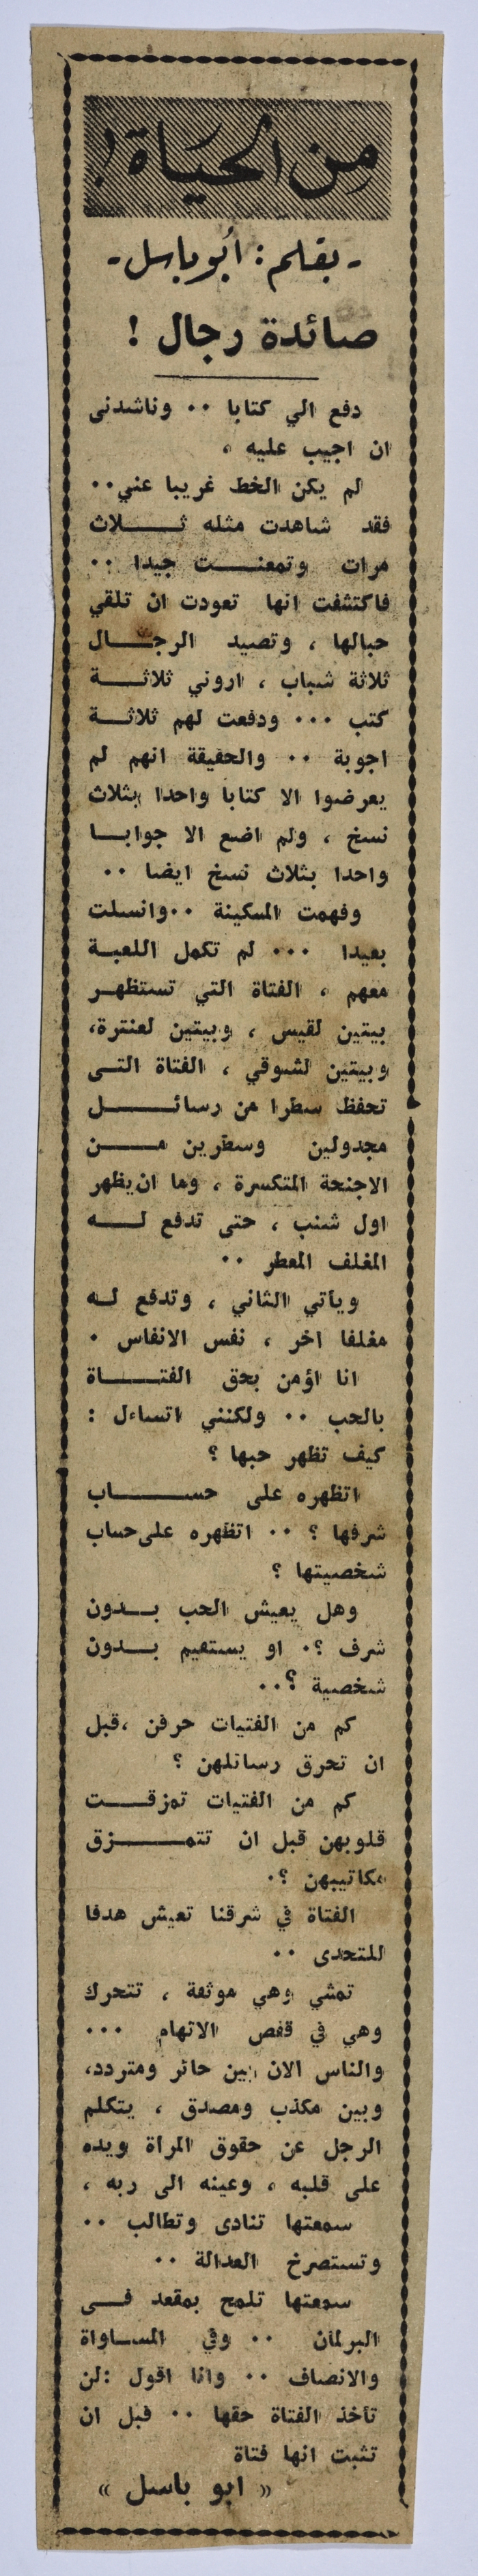 من الحياة !
- بقلم : أبو باسل -
صائدة رجال !
دفع الي كتابا ٠٠ وناشدني
ان اجيب عليه ،
لم يكن الخط غريبا عني٠٠
فقد شاهدت مثله ثلاث
مرات وتمعنت جيدا ٠٠
فاكتشفت انها تعودت ان تلقي
حبالها ، وتصيد الرجال
ثلاثة شباب ، اروني ثلاثة
كتب ٠٠٠ ودفعت لهم ثلاثة
اجوبة ٠٠ والحقيقة انهم لم
يعرضوا الا كتابا واحدا بثلاث
نسخ ، ولم اضع الا جوابا
واحدا بثلاث نسخ ايضا ٠٠
وفهمت المسكينة ٠٠وانسلت
بعيدا ٠٠٠ لم تكمل اللعبة
معهم ، الفتاة التي تستظهر
بيتين لقيس ، وبيتين لعنترة،
وبيتين لشوقي ، الفتاة التى
تحفظ سطرا من رسائل
مجدولين وسطرين من
الاجنحة المتكسرة ، وما ان يظهر
اول شنب ، حتى تدفع له
المغلف المعطر ٠٠
وياتي الثاني ، وتدفع له
مغلفا اخر ، نفس الانفاس ٠
انا اؤمن بحق الفتاة
بالحب ٠٠ ولكنني اتساءل :
كيف تظهر حبها ؟
اتظهره على حساب
شرفها ؟ ٠٠ اتظهره على حساب
شخصيتها ؟
وهل يعيش الحب بدون
شرف ؟٠ او يستقيم بدون
شخصية ؟٠٠
كم من الفتيات حرقن ،قبل
ان تحرق رسائلهن ؟
كم من الفتيات تمزقت
قلوبهن قبل ان تتمزق
مكاتيبهن ؟٠
الفتاة في شرقنا تعيش هدفا
للتحدى ٠٠
تمشي وهي موثقة ، تتحرك
وهي في قفص الاتهام ٠٠٠
والناس الان بين حائر ومتردد،
وبين مكذب ومصدق ، يتكلم
الرجل عن حقوق المراة ويده
على قلبه ، وعينه الى ربه ،
سمعتها تنادى وتطالب ٠٠
وتستصرخ العدالة ٠٠
سمعتها تلمح بمقعد فى
البرلمان ٠٠ وفي المساواة
والانصاف ٠٠ وانا اقول :لن
تأخذ الفتاة حقها ٠٠ قبل ان
تثبت انها فتاة
« ابو باسل »